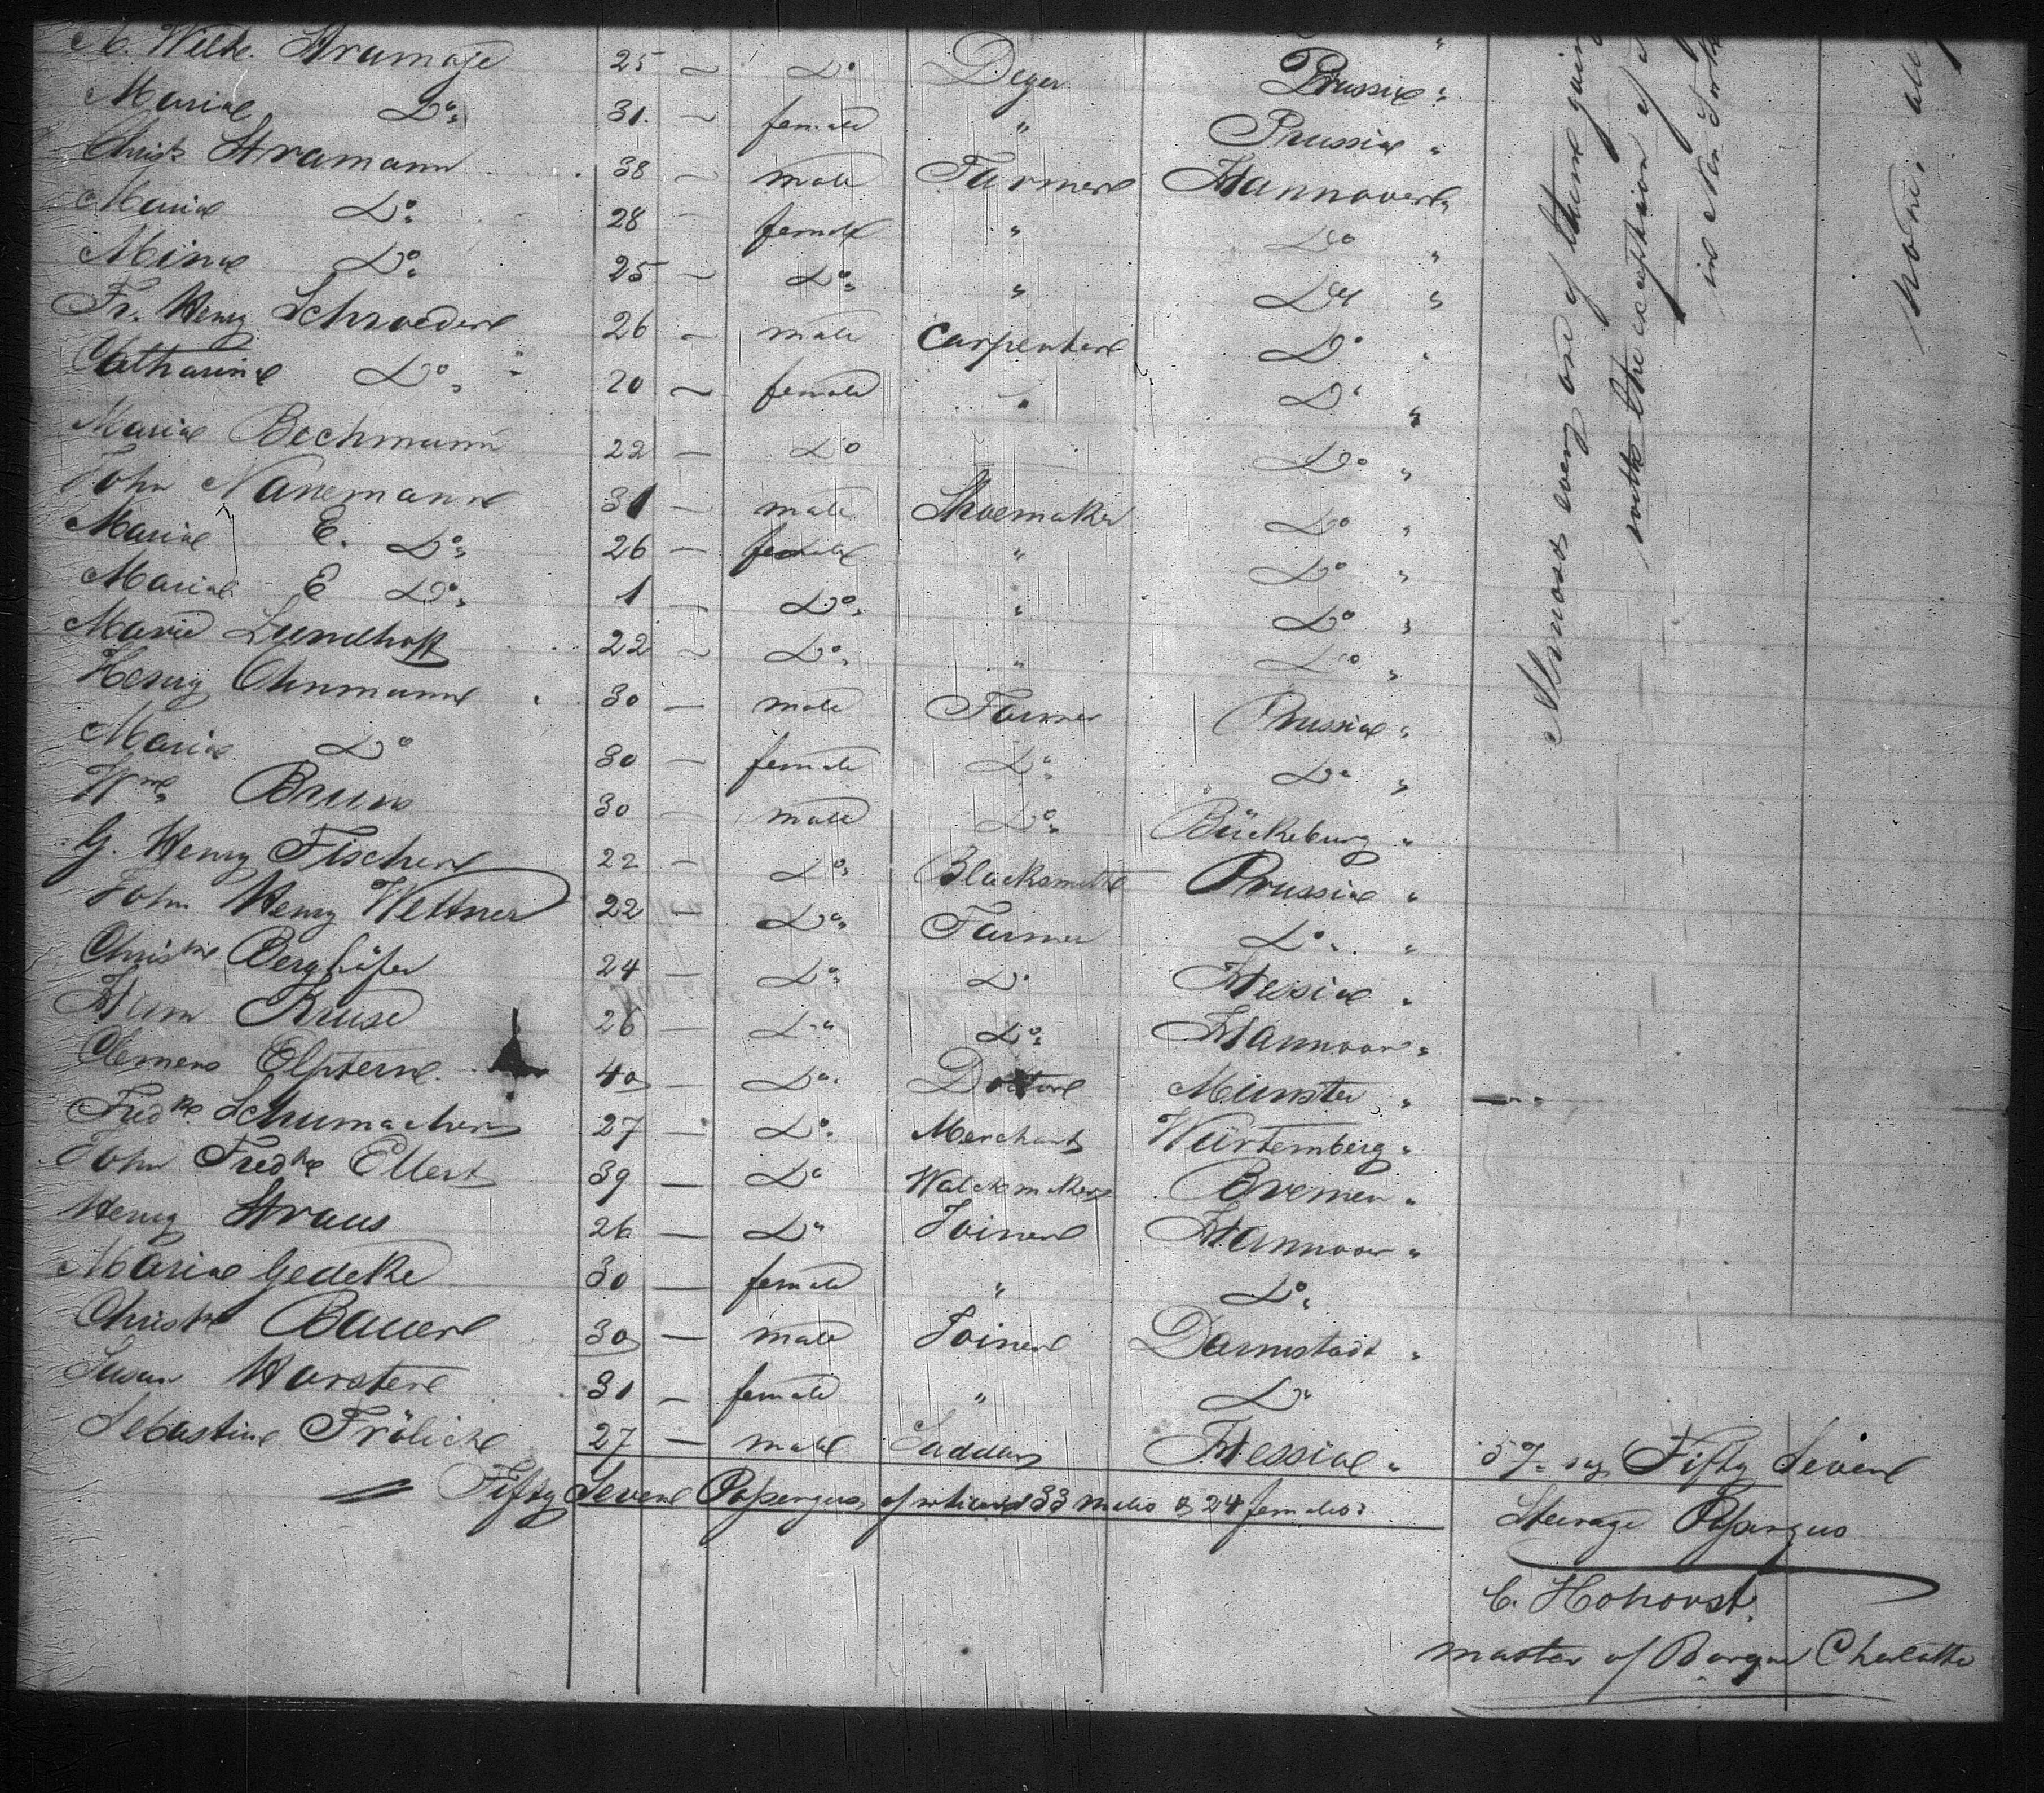 A. Wilh. Stramage 25 — Do Dyer Prussia "
Maria Do 31 — female " Prussia "
Christ Stramann 38 — male Farmer Hannover "
Maria Do 28 — female " Do "
Mina Do 25 — Do " Do "
Fr. Henry Schroeder 26 — male Carpenter Do "
Catharine Do 20 — female " Do "
Maria Bechmann 22 — Do Do "
John Nanemann 31 — male Shoemaker Do "
Maria E. Do 26 — female " Do "
Maria E Do 1 — Do " Do "
Marie Lundhoff 22 — Do " Do "
Henry Ohnmann 30 — male Farmer Prussia "
Maria Do 30 — female Do Do "
Wm Bruns 30 — male Do Bückeburg "
G. Henry Fischer 22 — Do Blacksmith Prussia "
John Henry Wettner 22 — Do Farmer Do "
Christ Berghöfer 24 — Do Do Hessia "
Herm Kruse 26 — Do Do Hannover "
Clemens Elpstern 40 — Do Doctor Münster "
Fredk Schumacher 27 — Do Merchant Würtemberg "
John Fredk Ellert 39 — Do Watchmaker Bremen "
Henry Straus 26 — Do Joiner Hannover "
Maria Gedeke 30 — female " Do
Christ Bauer 30 — male Joiner Darmstadt "
Susan Horster 31 — female " Do
Sebastine Frölich 27 — male Saddler Hessia "
Fifty Seven Passengers, of which 33 males & 24 females
Almost every one of them going
with the exception of
in New York
None
57 say Fifty Seven
Steerage Passengers
C. Hohorst
master of Barque Charlotte